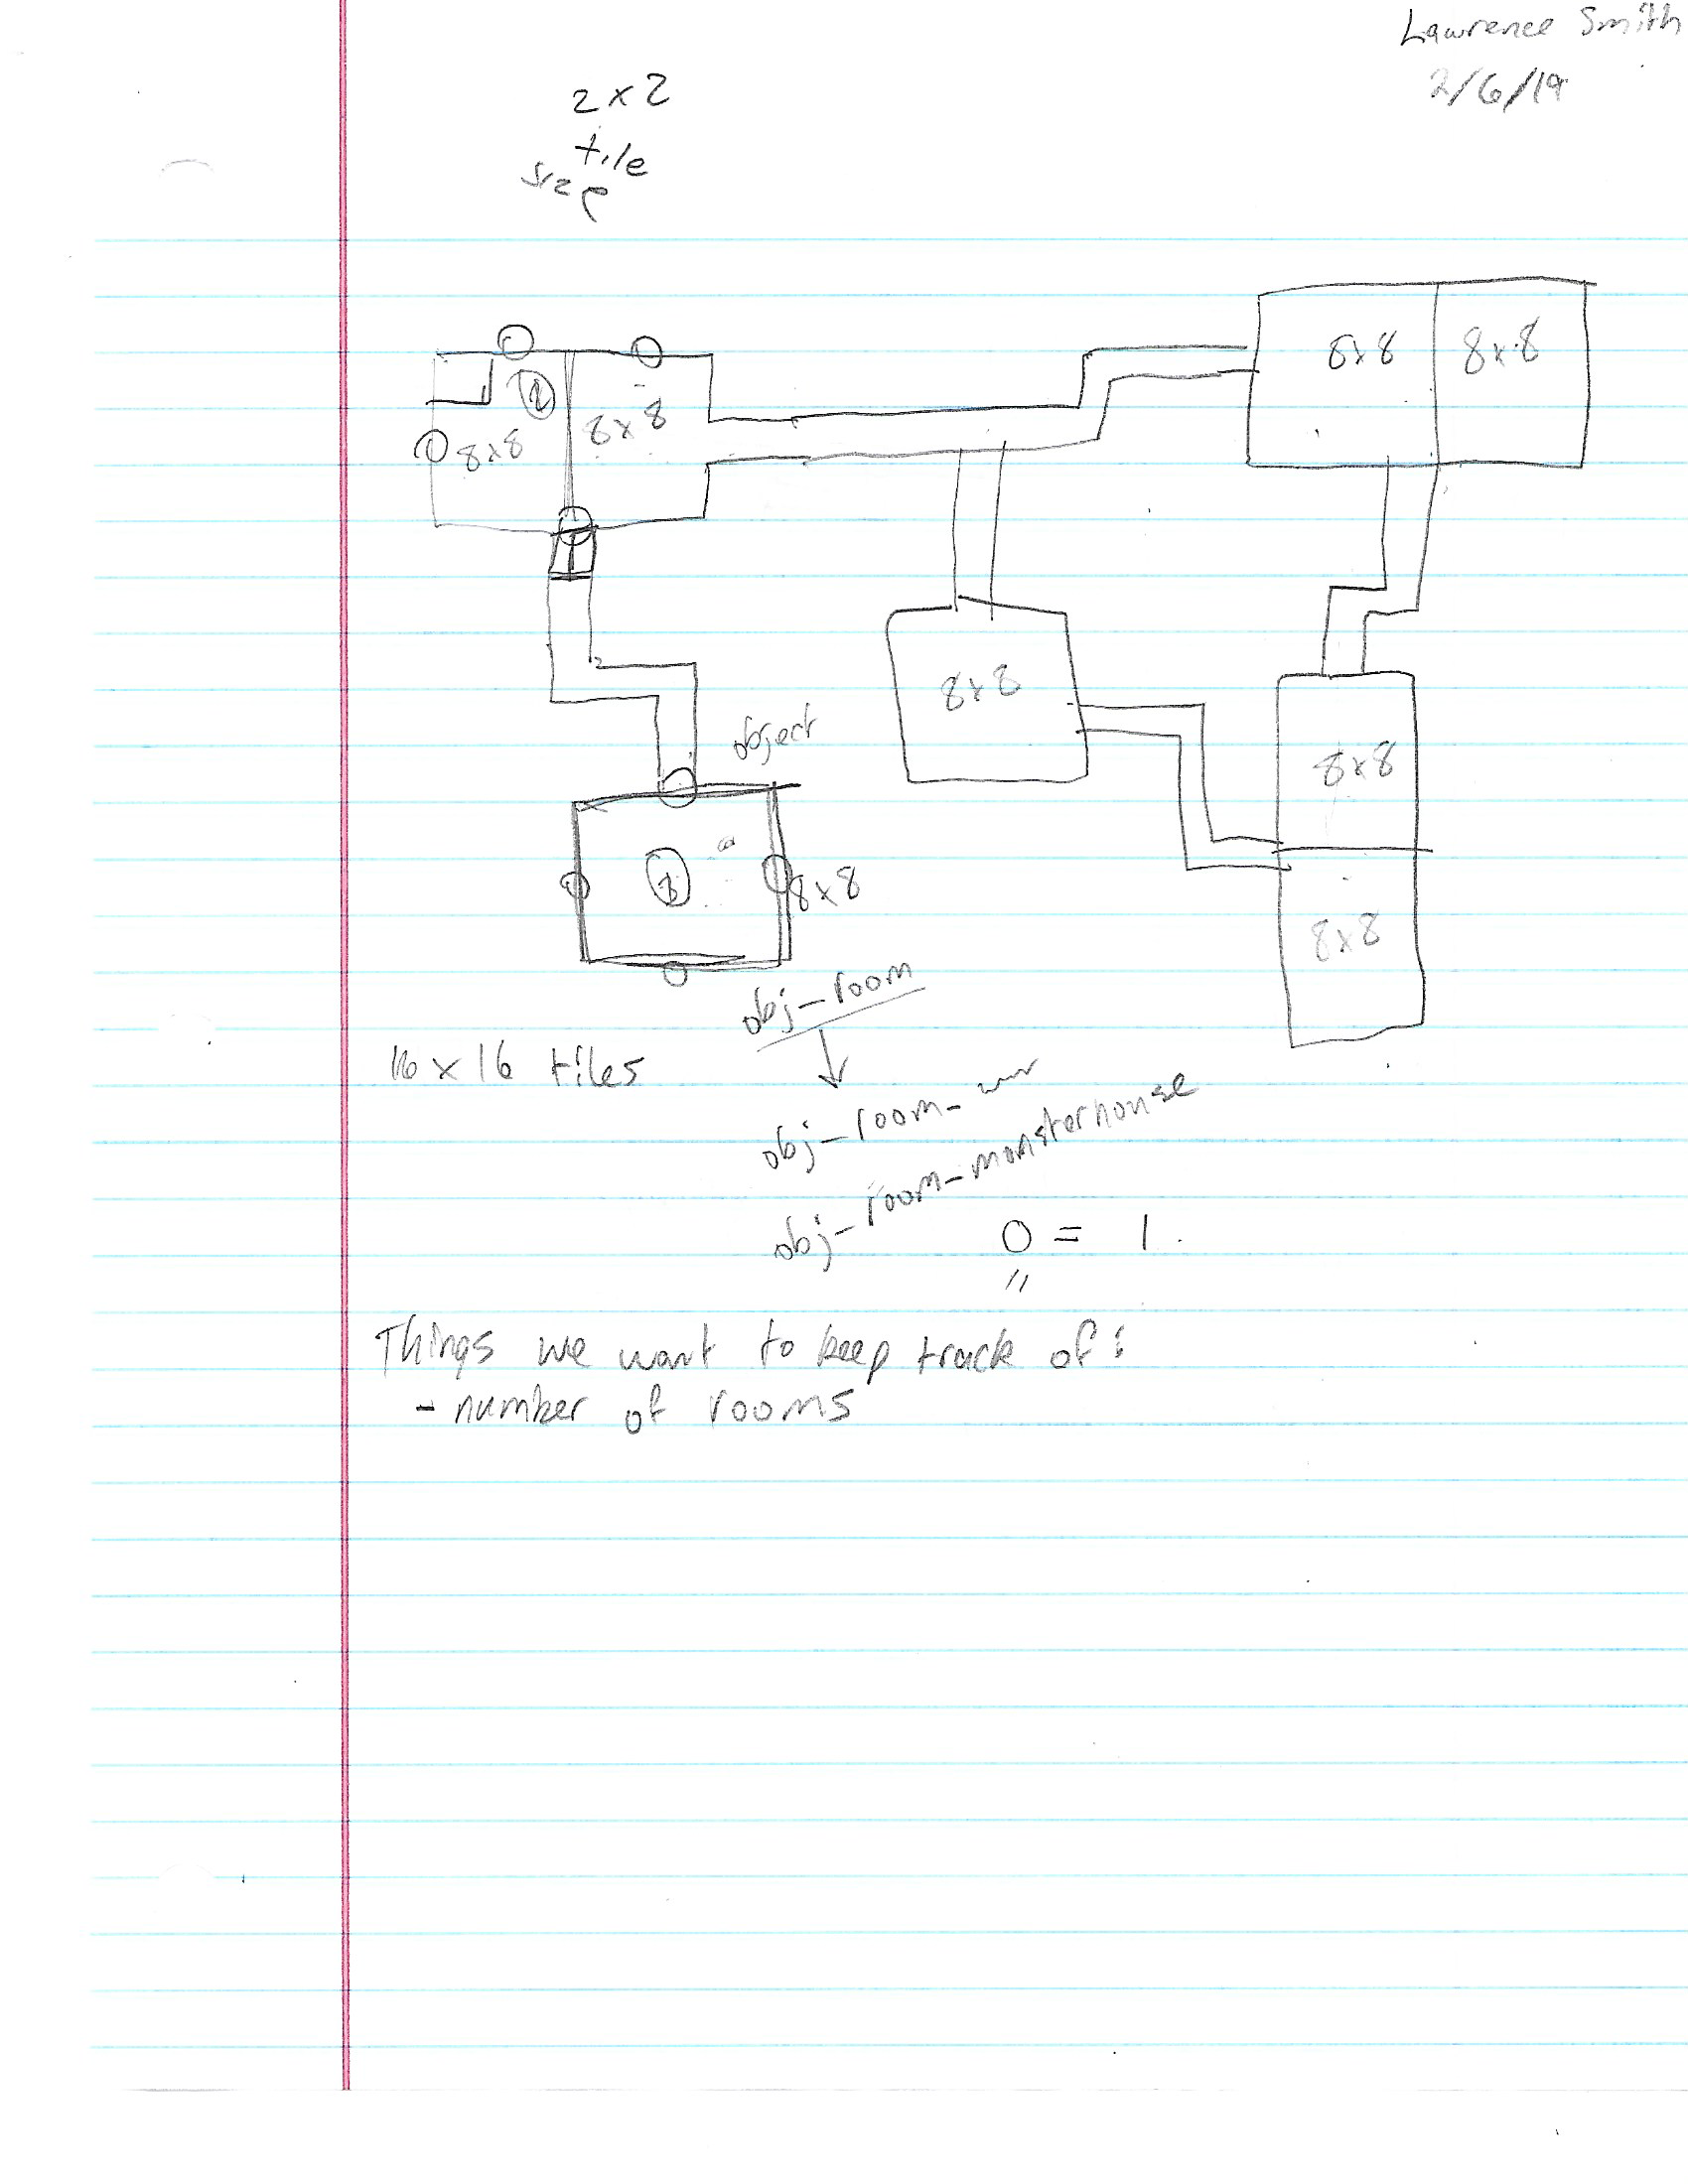 Lawrence Smith
2/6/19
2 x 2
tile
size
8x8
8x8
8x8
8x8
8x8
object
8x8
8x8
8x8
obj-room
16 x 16 tiles
obj-room-
obj-room-monsterhouse
0 = 1
"
Things we want to keep track of:
- number of rooms